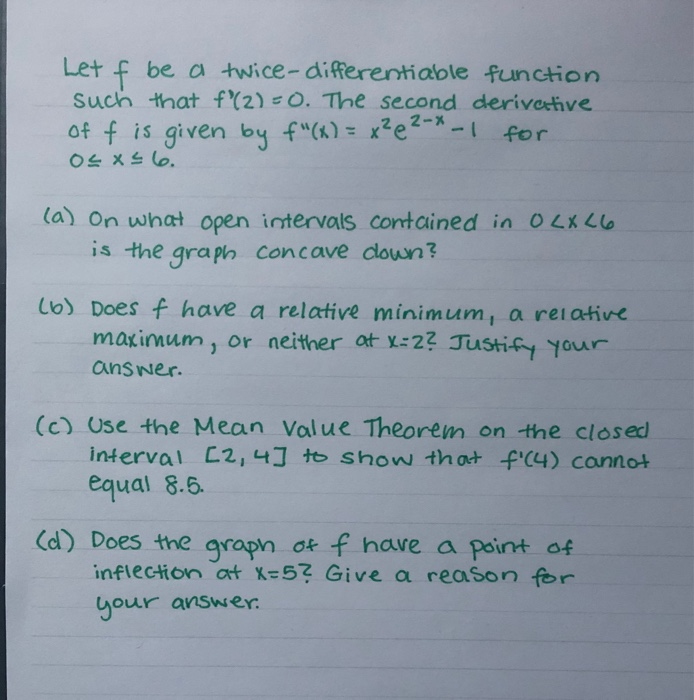 Let f be a twice-differentiable function
such that f'(2)=0. The second derivative
of f is given by f"(x) = x²e²⁻ˣ -1 for
0≤ x ≤ 6.
(a) On what open intervals contained in 0<x<6
is the graph concave down?
(b) Does f have a relative minimum, a relative
maximum, or neither at x=2? Justify your
answer.
(c) Use the Mean Value Theorem on the closed
interval [2,4] to show that f'(4) cannot
equal 8.5.
(d) Does the graph of f have a point of
inflection at x=5? Give a reason for
your answer.